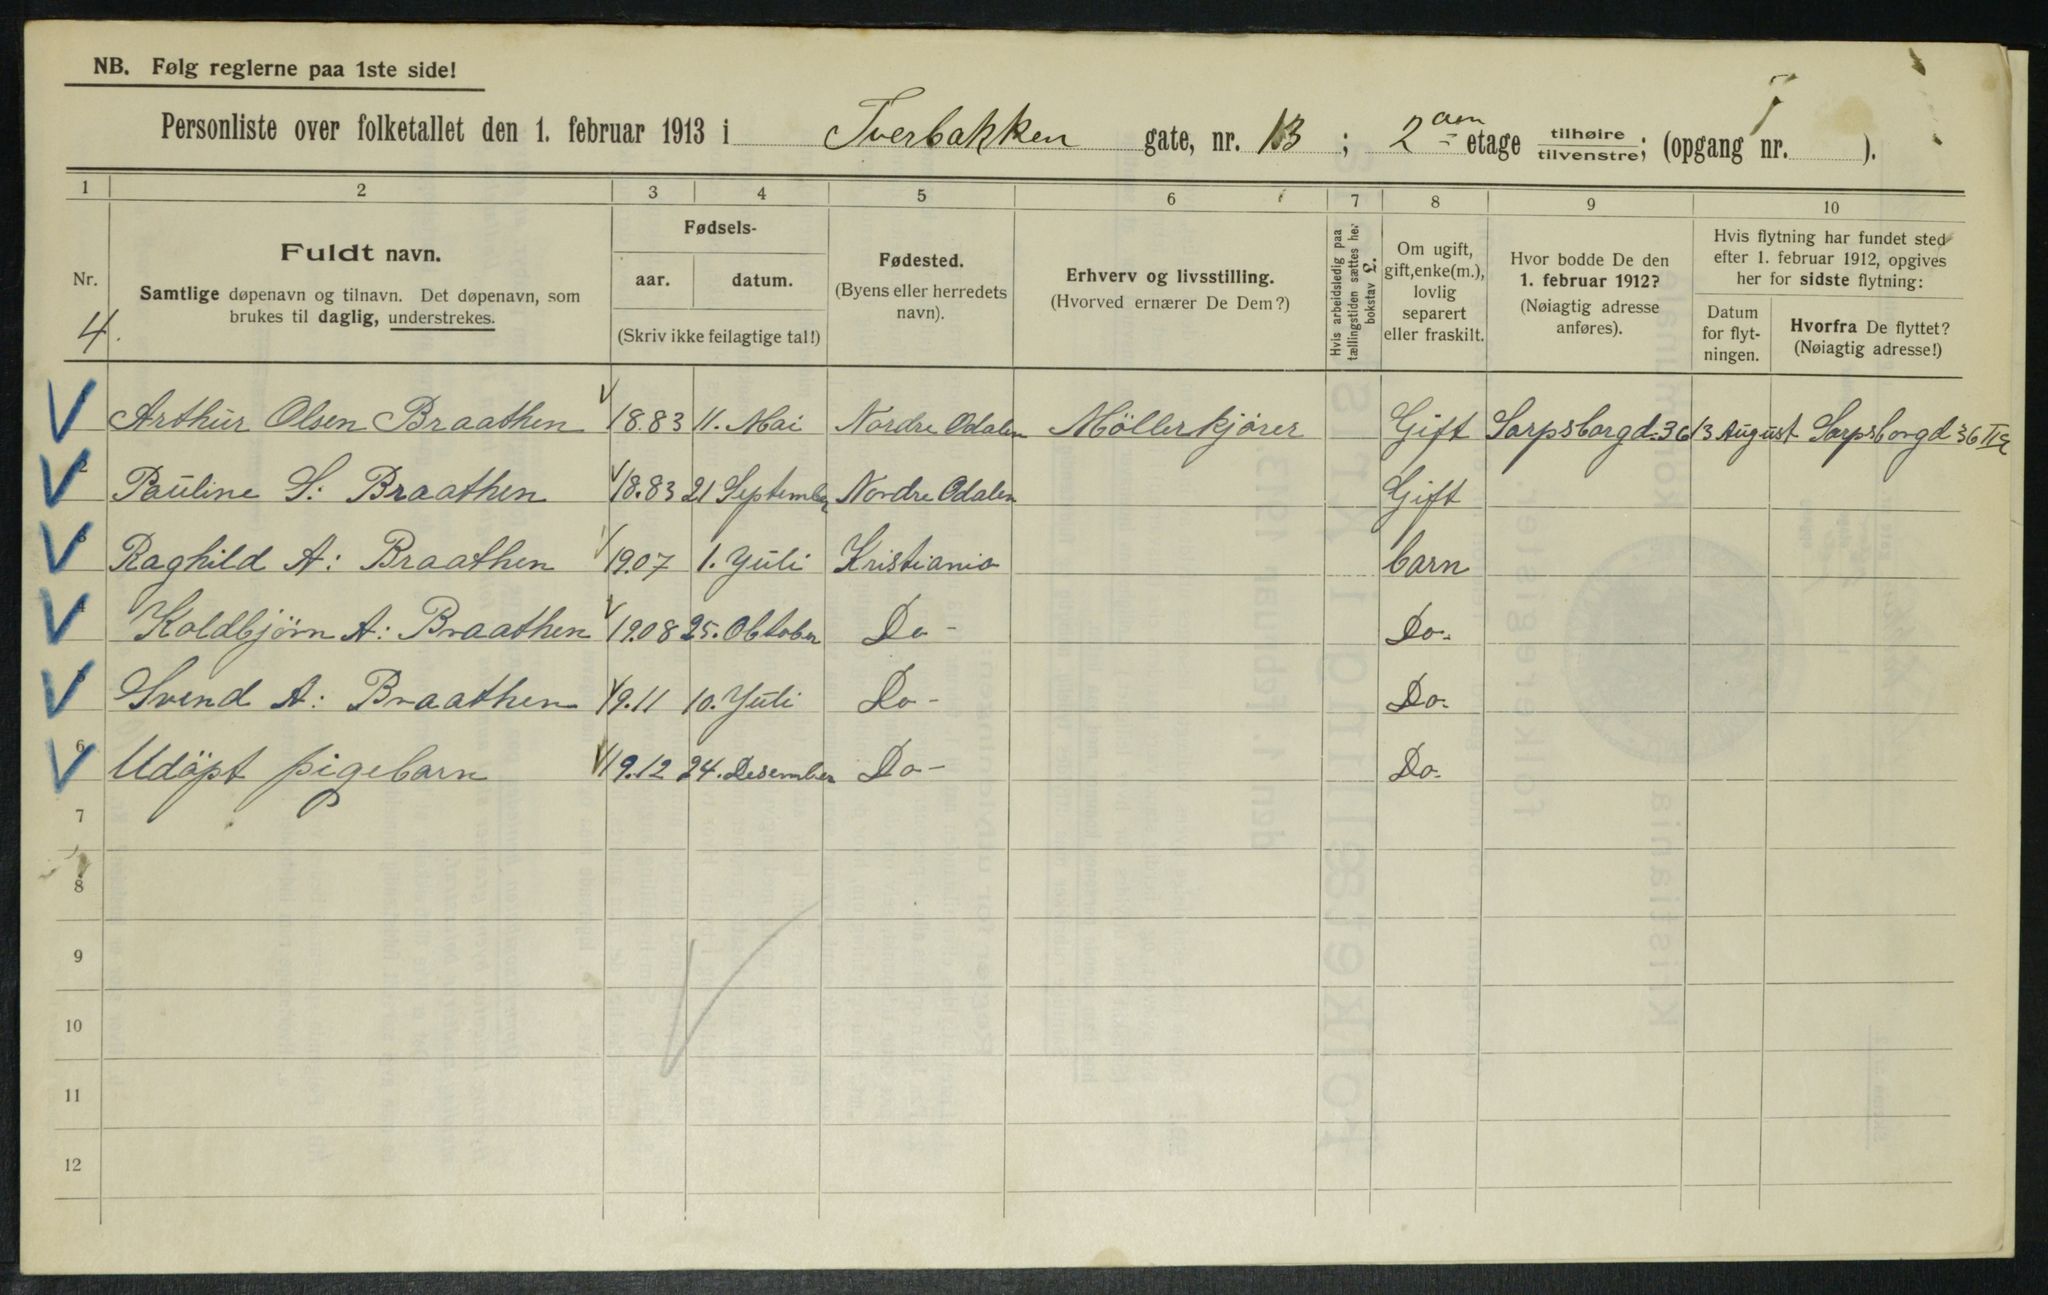 NB. Følg reglerne paa 1ste side!
Personliste over folketallet den 1. februar 1913 i Tverbakken gate, nr. 13 ; 2 etage tilhøire / tilvenstre; (opgang nr. ).
1 2 3 4 5 6 7 8 9 10
Nr.
4.
Fuldt navn.
Samtlige døpenavn og tilnavn. Det døpenavn, som
brukes til daglig, understrekes.
Fødsels-
aar. datum.
(Skriv ikke feilagtige tal!)
Fødested.
(Byens eller herredets
navn).
Erhverv og livsstilling.
(Hvorved ernærer De Dem?)
Hvis arbeidsledig paa
tællingstiden sættes her
bokstav £.
Om ugift,
gift, enke(m.),
lovlig
separert
eller fraskilt.
Hvor bodde De den
1. februar 1912?
(Nøiagtig adresse
anføres).
Hvis flytning har fundet sted
efter 1. februar 1912, opgives
her for sidste flytning:
Datum
for flyt-
ningen.
Hvorfra De flyttet?
(Nøiagtig adresse!)
Arthur Olsen Braathen 18.83 11. Mai Nordre Odalen Möllerkjører Gift Sarpsborgd. 36 13 August Sarpsborgd 36
2 Pauline S: Braathen 18.83 21 September Nordre Odalen Gift
3 Raghild A: Braathen 19.07 1. Yuli Kristiania barn
4 Koldbjörn A: Braathen 19.08 25. Oktober Do - Do.
5 Svend A: Braathen 19.11 10. Yuli Do - Do.
6 Udöpt pigebarn 19.12 24. Desember Do - Do.
7
8
9
10
11
12